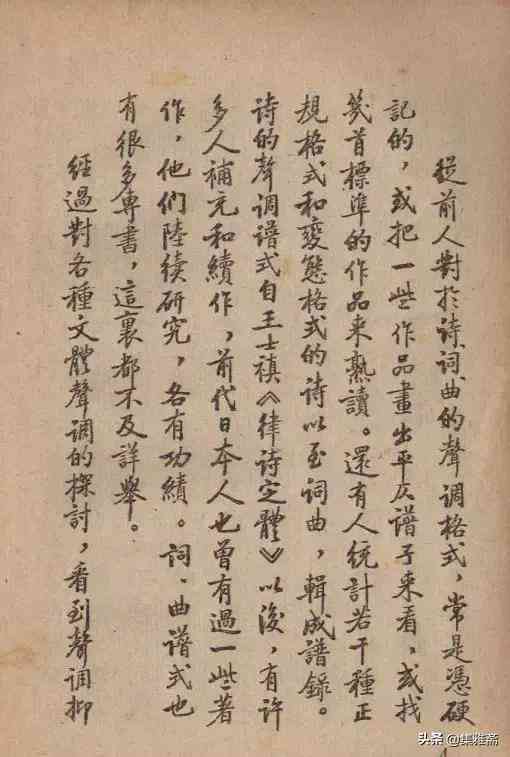 從前人對於诗词曲的聲调格式，常是憑硬
記的，或把一些作品畫出平仄谱子来看，或找
幾首標準的作品来熟讀。還有人统計若干種正
規格式和變態格式的诗以至词曲，輯成譜錄。
诗的聲调谱式自王士禛《律诗定體》以後，有许
多人補充和續作，前代日本人也曾有過一些著
作，他們陸续研究，各有功績。词、曲谱式也
有很多專書，這裏都不及詳舉。
經過對各種文體聲调的探討，看到聲调抑
头条@集雅斋